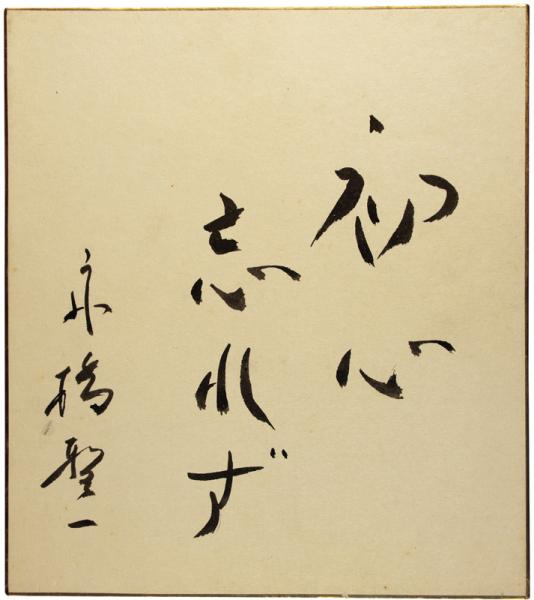 初心
忘れず
舟橋聖一